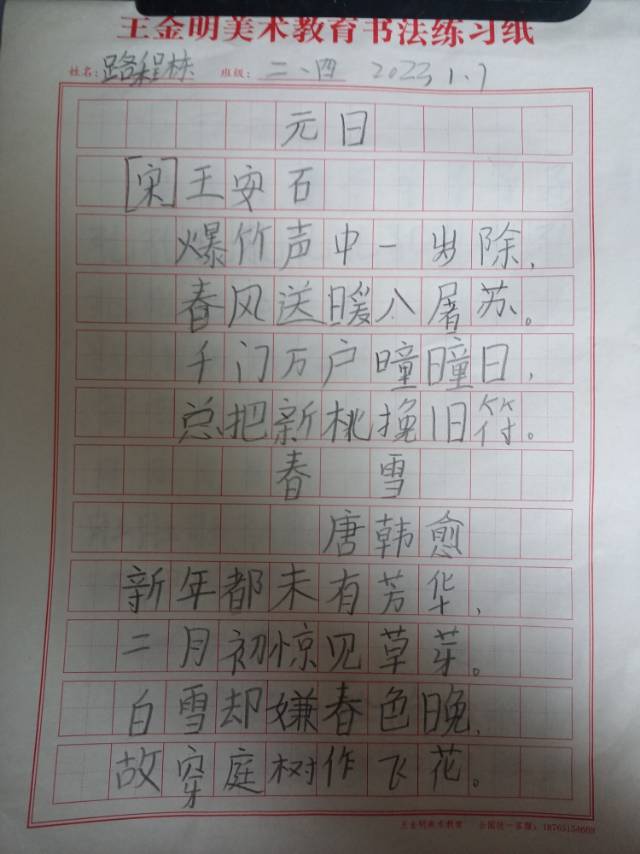 王金明美术教育书法练习纸
姓名：路程栋 班级：二、四 2023.1.7
元日
[宋]王安石
爆竹声中一岁除，
春风送暖入屠苏。
千门万户曈曈日，
总把新桃挽旧符。
春雪
唐韩愈
新年都未有芳华，
二月初惊见草芽。
白雪却嫌春色晚，
故穿庭树作飞花。
王金明美术教育 全国统一客服：18765154669